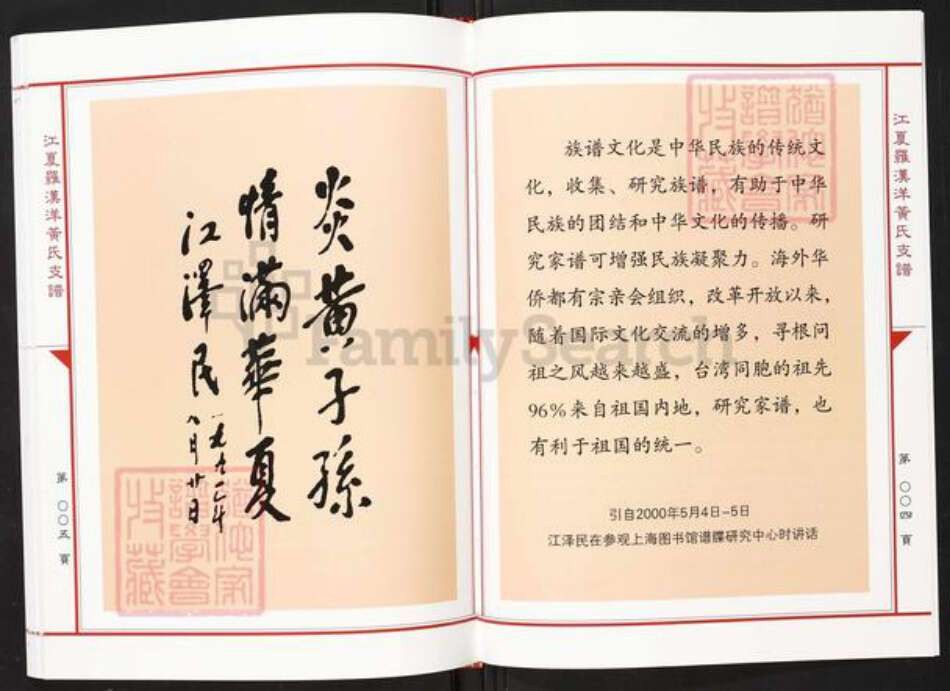 江夏羅漢洋黃氏支譜
第〇〇四頁
族谱文化是中华民族的传统文
化，收集、研究族谱，有助于中华
民族的团结和中华文化的传播。研
究家谱可增强民族凝聚力。海外华
侨都有宗亲会组织，改革开放以来，
随着国际文化交流的增多，寻根问
祖之风越来越盛，台湾同胞的祖先
96%来自祖国内地，研究家谱，也
有利于祖国的统一。
引自2000年5月4日-5日
江泽民在参观上海图书馆谱牒研究中心时讲话
炎黃子孫
情滿華夏
江澤民
八月廿日
江夏羅漢洋黃氏支譜
第〇〇五頁
FamilySearch
譜學會
收藏